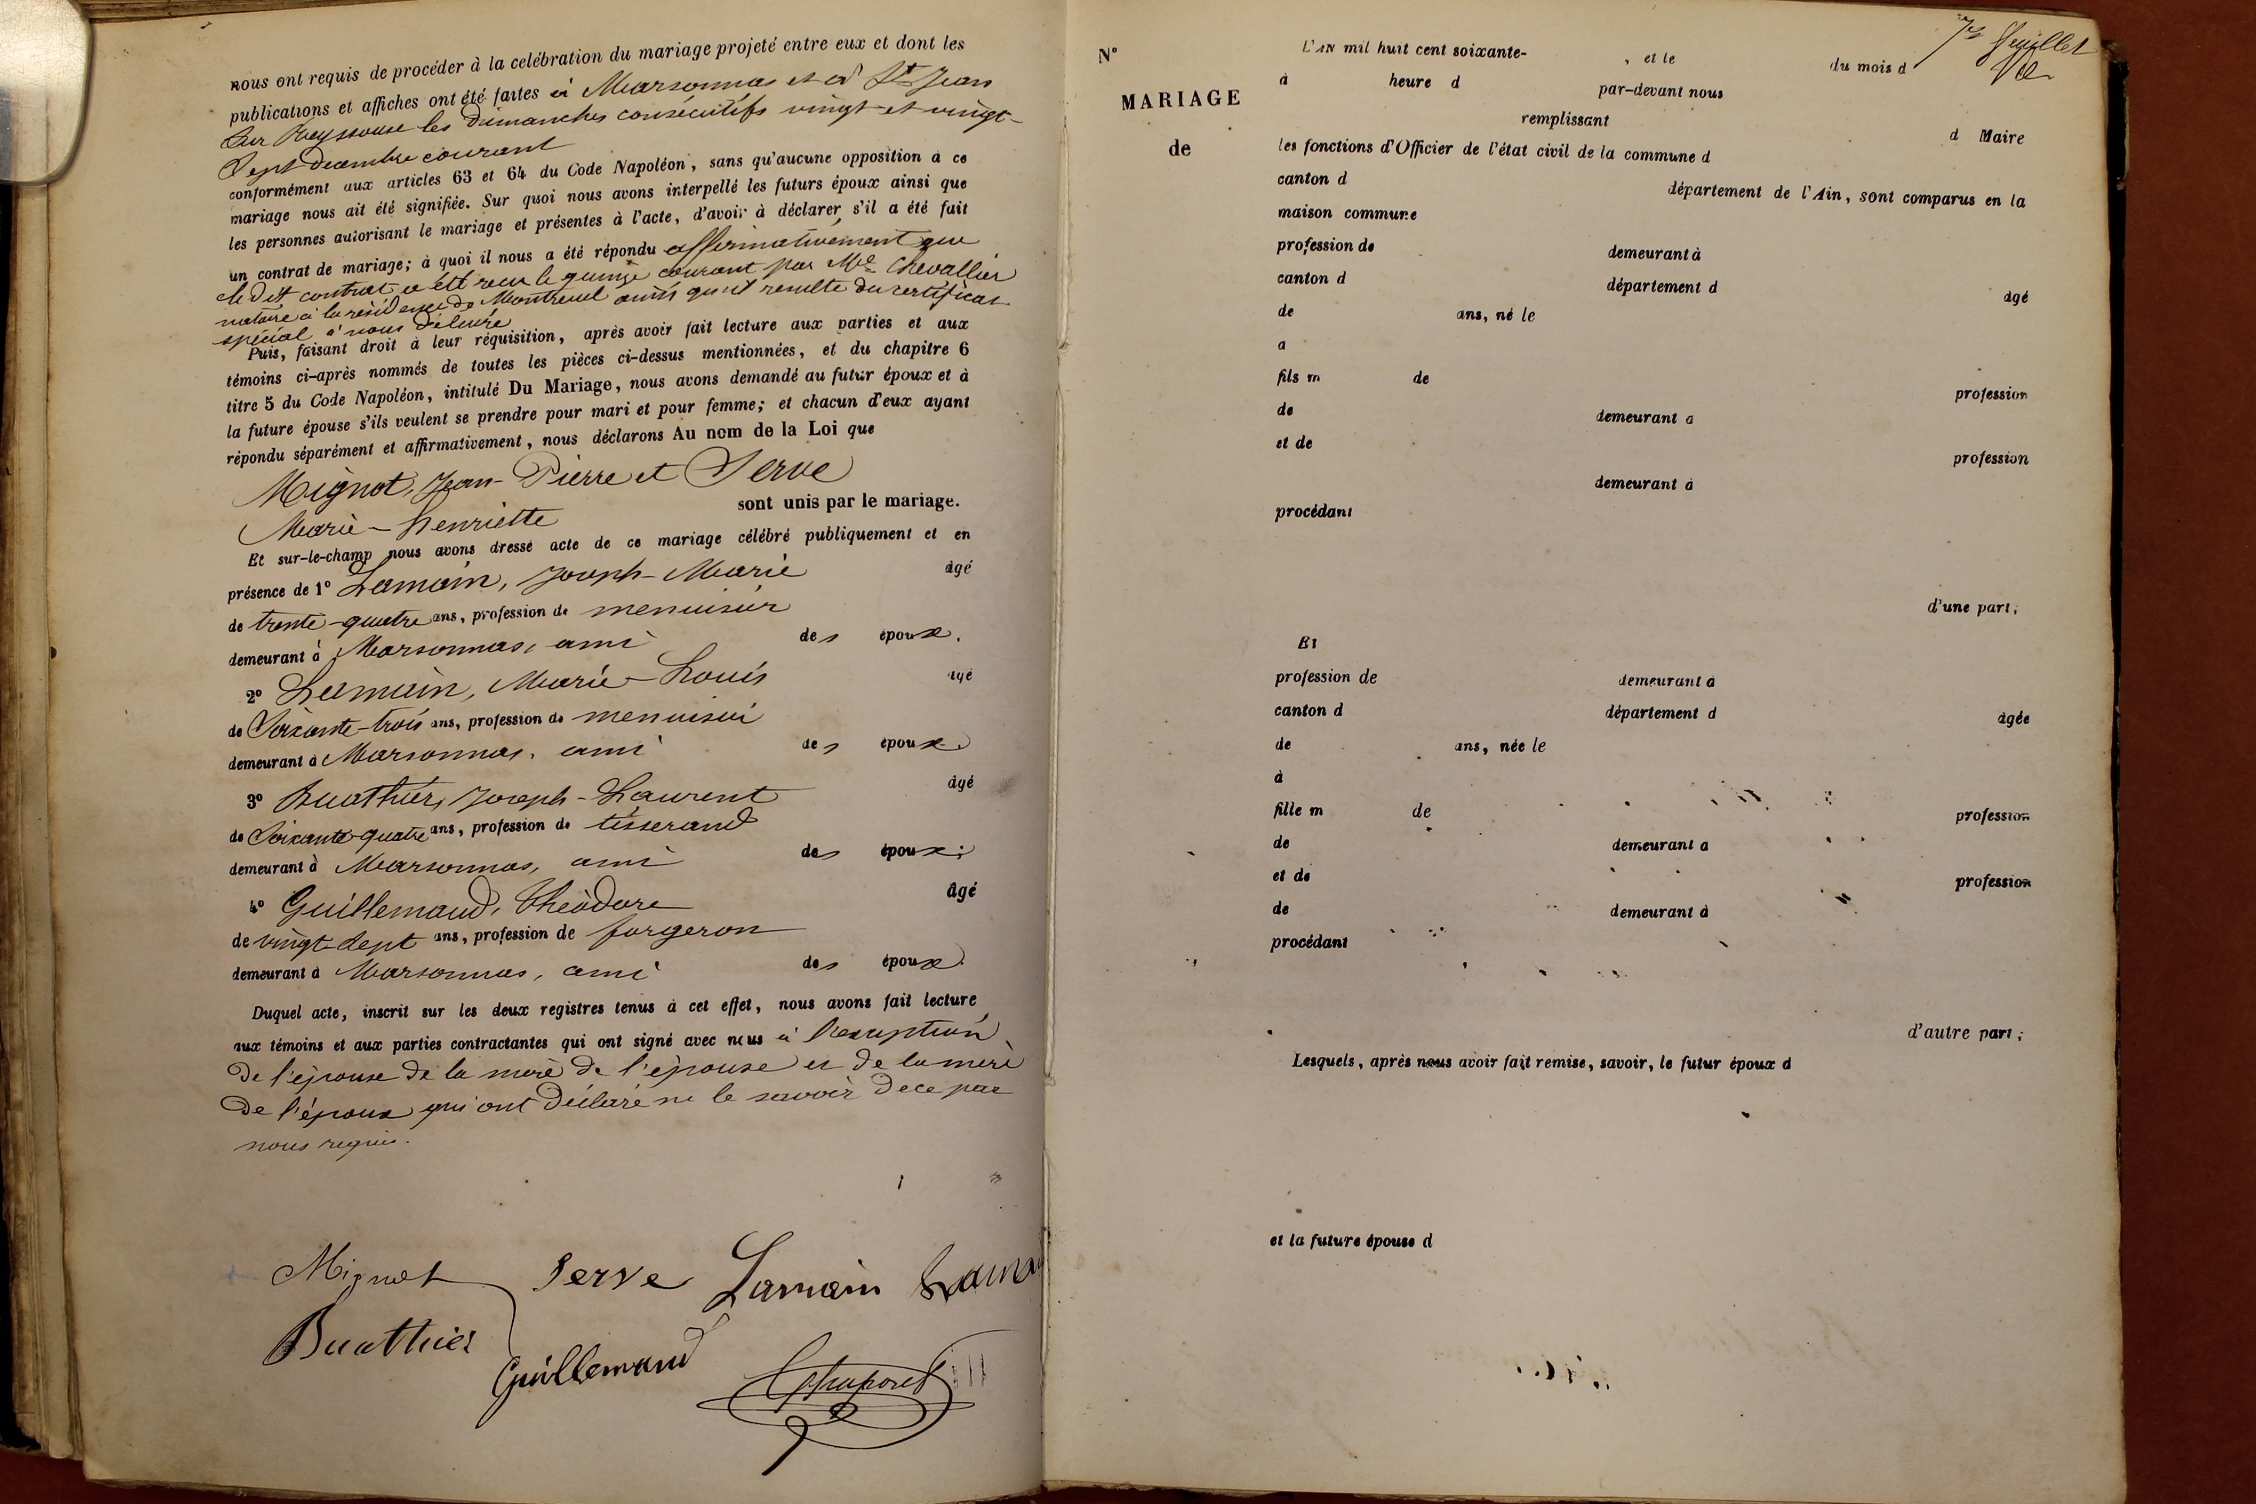 nous ont requis de procéder à la celébration du mariage projeté entre eux et dont les
publications et affiches ont été faites à Marsonnas et à St Jean
Sur Reyssouze les dimanches consécutifs vingt et vingt-
Sept decembre courant
conformément aux articles 63 et 64 du Code Napoléon, sans qu'aucune opposition à ce
mariage nous ait été signifiée. Sur quoi nous avons interpellé les futurs époux ainsi que
les personnes autorisant le mariage et présentes à l'acte, d'avoir à déclarer s'il a été fait
un contrat de mariage; à quoi il nous a été répondu affirmativement que
le dit contrat a été recu le quinze courant par Me Chevallier
notaire à la résidence de Montrevel ainsi qu'il resulte du certificat
spécial à nous délivré
Puis, faisant droit à leur réquisition, après avoir fait lecture aux parties et aux
témoins ci-après nommés de toutes les pièces ci-dessus mentionnées, et du chapitre 6
titre 5 du Code Napoléon, intitulé Du Mariage, nous avons demandé au futur époux et à
la future épouse s'ils veulent se prendre pour mari et pour femme; et chacun d'eux ayant
répondu séparément et affirmativement, nous déclarons Au nom de la Loi que
Mignot, Jean-Pierre et Serve
Marie-henriette sont unis par le mariage.
Et sur-le-champ nous avons dressé acte de ce mariage célébré publiquement et en
présence de 1° Lamain, Joseph-Marie âgé
de trente-quatre ans, profession de menuisier
demeurant à Marsonnas, ami des époux.
2° Lamain, Marie-Louis âgé
de Soixante-trois ans, profession de menuisier
demeurant à Marsonnas, ami des époux.
3° Buathier, Joseph-Laurent âgé
de Soixante-quatre ans, profession de tisserand
demeurant à Marsonnas, ami des époux;
4° Guillemaud, Théodore âgé
de vingt-sept ans, profession de forgeron
demeurant à Marsonnas, ami des époux.
Duquel acte, inscrit sur les deux registres tenus à cet effet, nous avons fait lecture
aux témoins et aux parties contractantes qui ont signé avec nous à l'exception
de l'épouse de la mère de l'épouse et de la mère
de l'époux qui ont déclaré ne le savoir de ce par
nous requis.
Mignot Serve Lamain Lamain
Buathier
Guillemaud
7e feuillet
N° L'AN mil huit cent soixante- , et le du mois d
à heure d par-devant nous
MARIAGE
remplissant d Maire
de les fonctions d'Officier de l'état civil de la commune d
canton d département de l'Ain, sont comparus en la
maison commune
profession de demeurant à
canton d département d âgé
de ans, né le
a
fils m de profession
de demeurant a
et de profession
demeurant à
procédant
d'une part;
Et
profession de demeurant à
canton d département d âgée
de ans, née le
à
fille m de profession
de demeurant a
et de profession
de demeurant à
procédant
d'autre part;
Lesquels, après nous avoir fait remise, savoir, le futur époux d
et la future épouse d